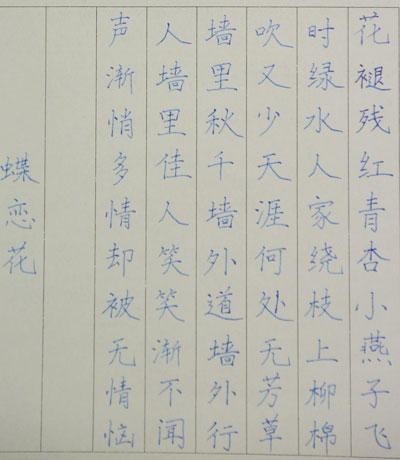 花褪残红青杏小燕子飞
时绿水人家绕枝上柳棉
吹又少天涯何处无芳草
墙里秋千墙外道墙外行
人墙里佳人笑笑渐不闻
声渐悄多情却被无情恼
蝶恋花